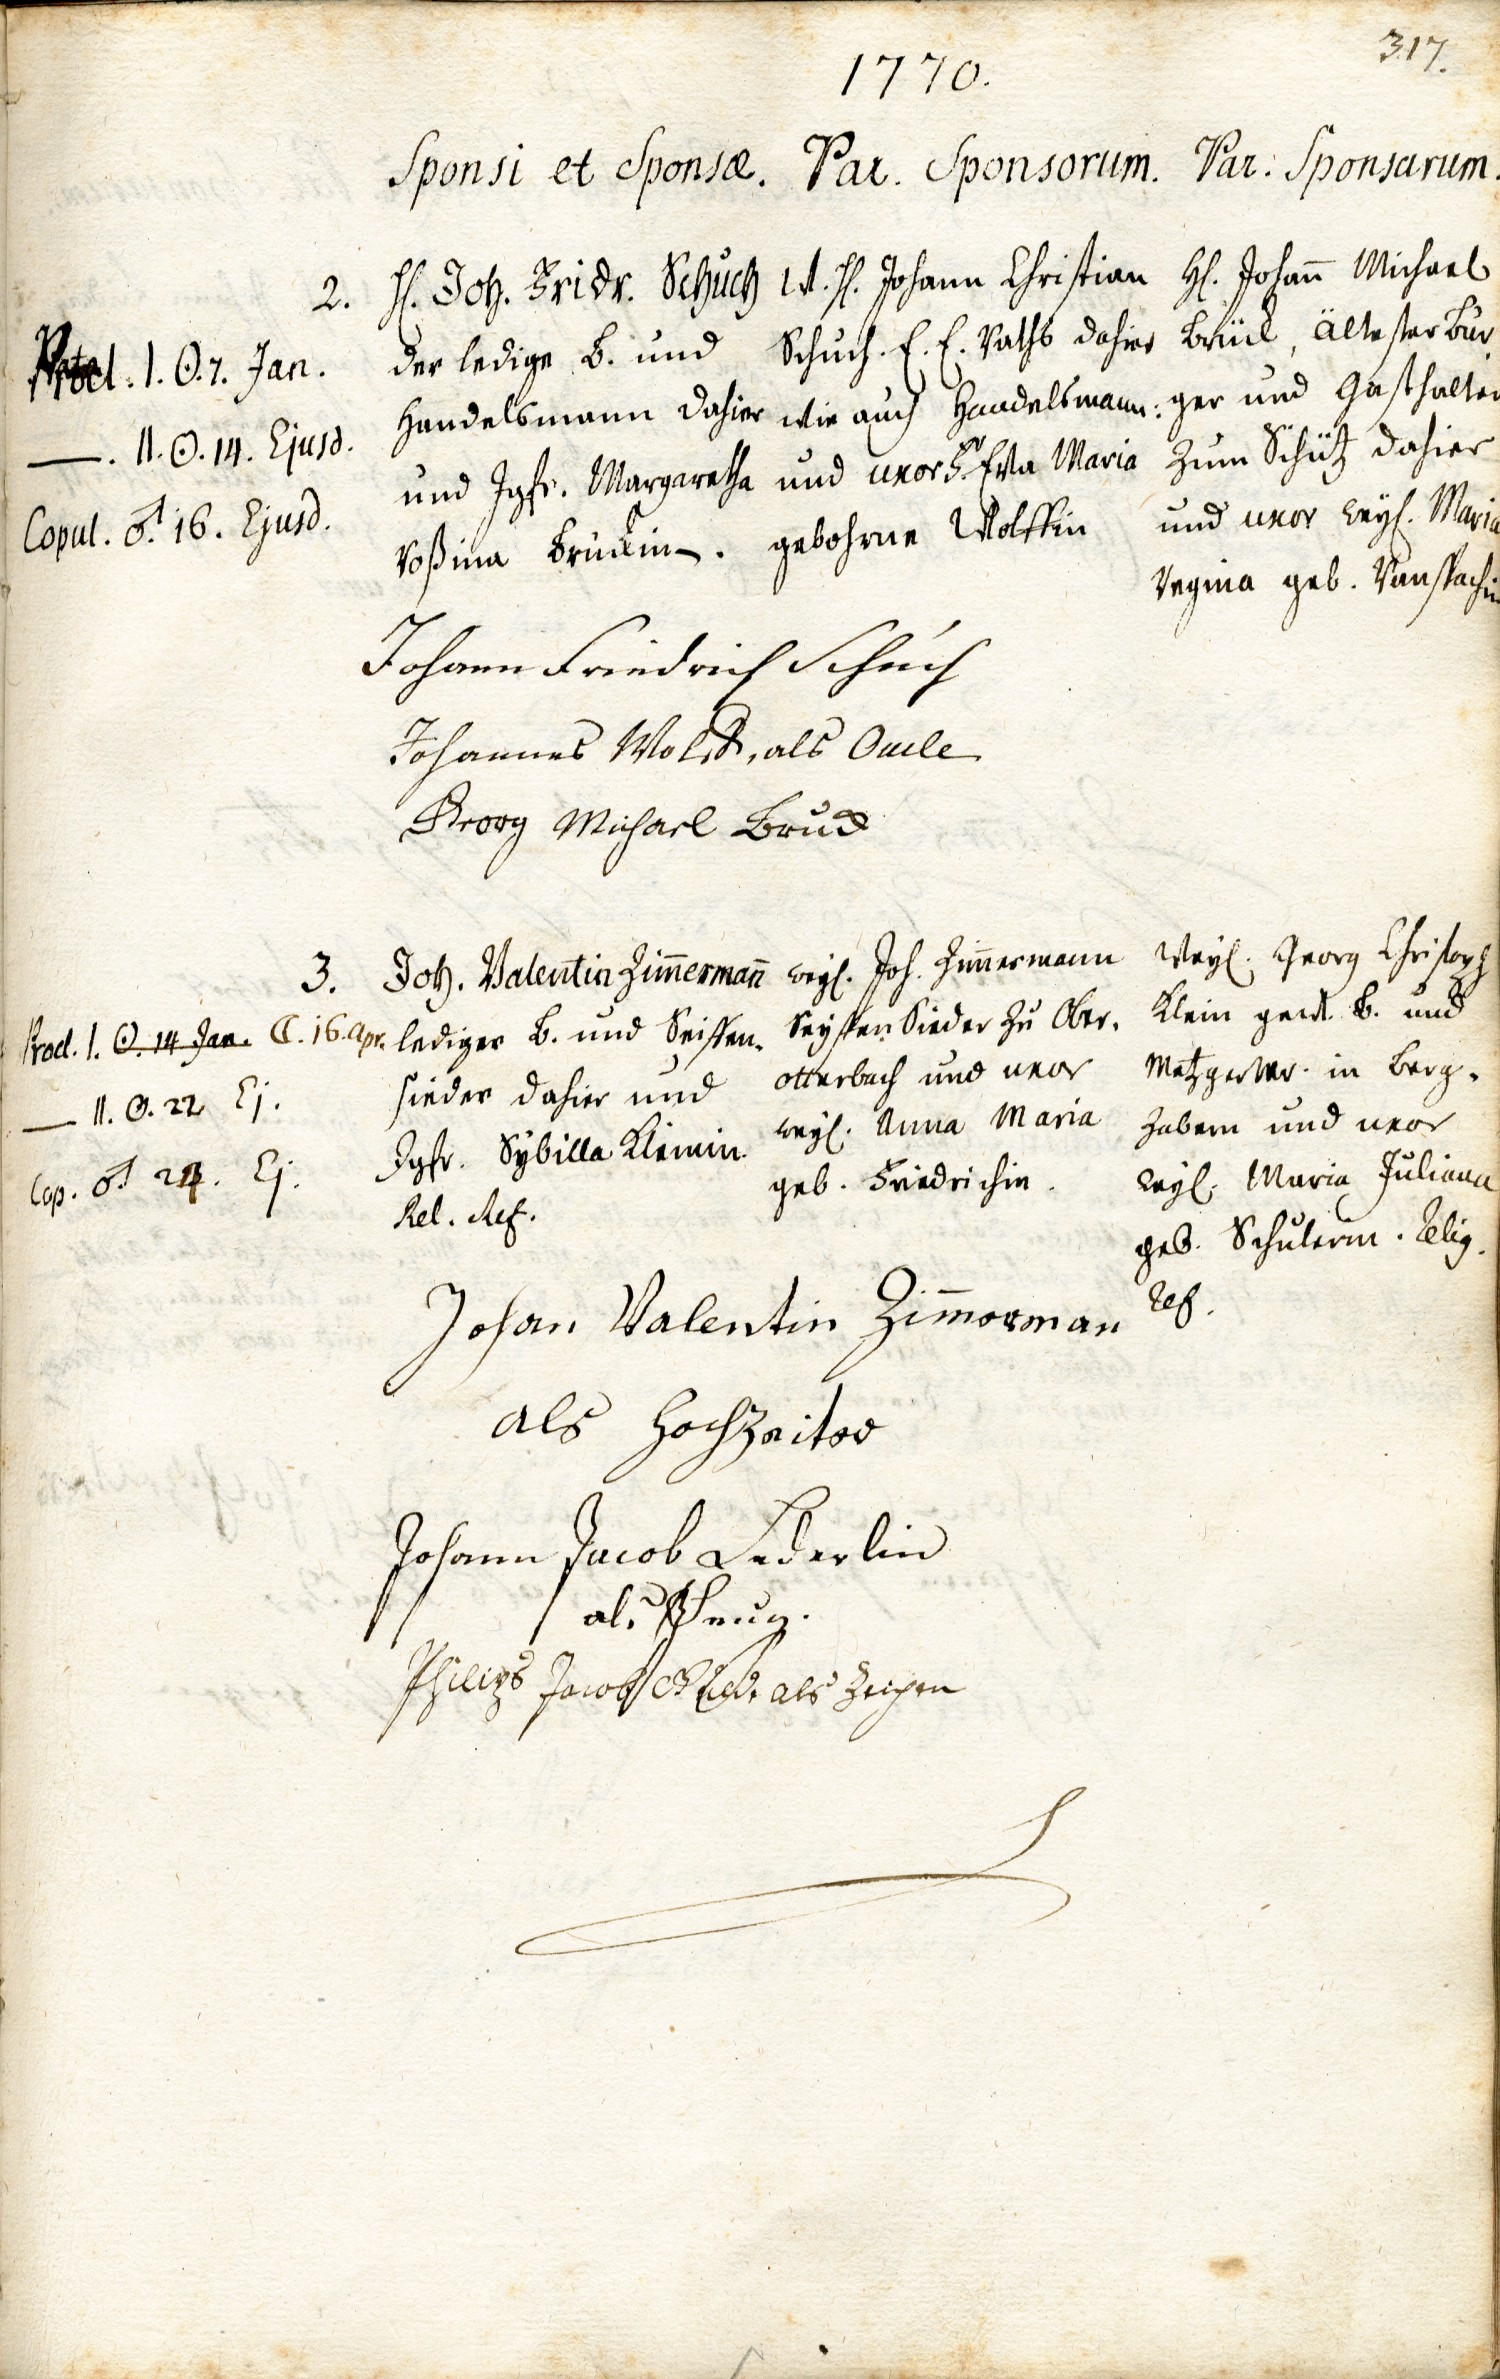 317.
1770.
Sponsi et Sponsæ. Par. Sponsorum. Par. Sponsarum.
Procl. I. ☉. 7. Jan.
—. II. ☉. 14. Ejusd.
Copul. ♂. 16. Ejusd.
2. H. Joh. Fridr. Schuch
der ledige B. und
Handelsmann dahier
und Jgfr. Margaretha
Roßina
H. Johann Christian
Schuch. E. E. Raths dahier
wie auch Handelsmann:
und uxor Fr. Eva Maria
gebohrne Wolffin
H. Johann Michael
ältester Bür
ger und Gasthalter
zum Schütz dahier
und uxor weyl. Maria
Regina geb.
Johann Friedrich Schuch
Johannes Wolff, als Oncle
Georg Michael
Procl. I. ☉. 14 Jan. ☾. 16. Apr.
— II. ☉. 22 Ej.
Cop. ♂ 24. Ej.
3. Joh. Valentin Zimmermañ
lediger B. und Seiffen-
sieder dahier und
Jgfr. Sybilla Kleinin.
Rel. Ref.
weyl. Joh. Zimmermann
Seyffen Sieder zu Ober-
otterbach und uxor
weyl. Anna Maria
geb. Friedrichin.
Weyl. Georg Christoph
Klein B. und
in Berg-
zabern und uxor
weyl. Maria Juliana
geb. Schulerin. Relig.
Ref.
Johan Valentin Zimmerman
als Hochzeiter
Johann Jacob Lederlin
als Zeug.
Philips Jacob als Zeigen